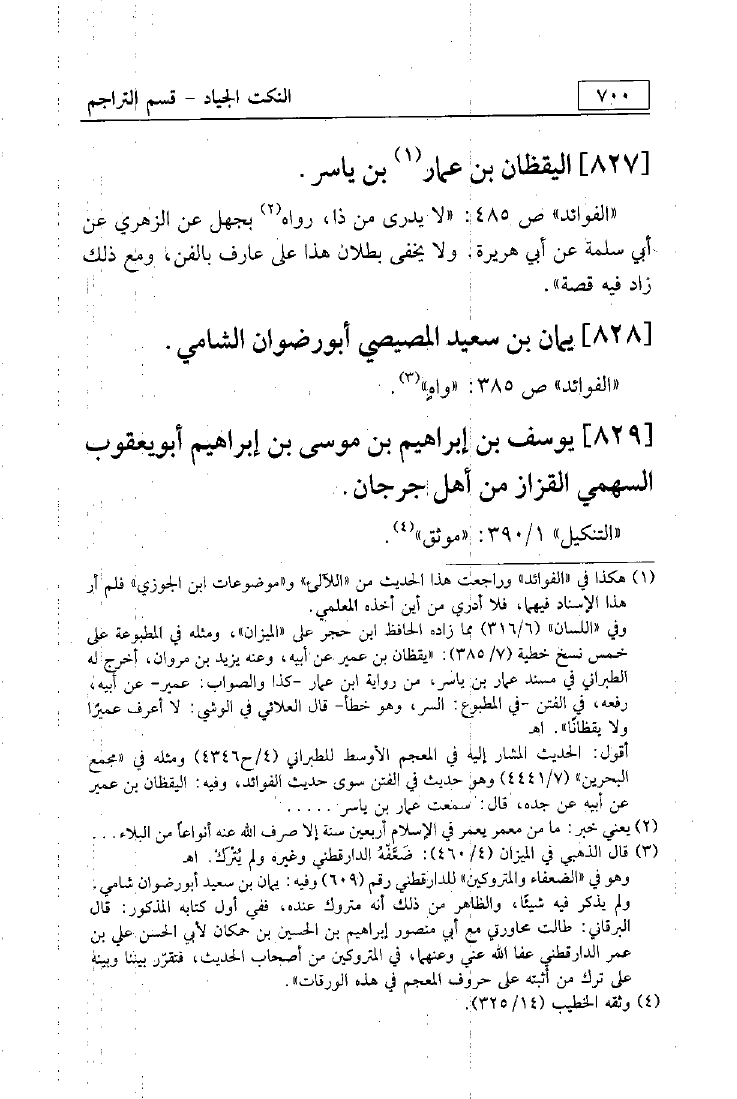 ٧٠٠
النكت الجياد - قسم التراجم
[٨٢٧] اليقظان بن عمار(١) بن ياسر .
«الفوائد» ص ٤٨٥: «لا يدرى من ذا، رواه(٢) بجهل عن الزهري عن
أبي سلمة عن أبي هريرة. ولا يخفى بطلان هذا على عارف بالفن، ومع ذلك
زاد فيه قصة».
[٨٢٨] يمان بن سعيد المصيصي أبورضوان الشامي.
«الفوائد» ص ٣٨٥: «واهٍ»(٣).
[٨٢٩] يوسف بن إبراهيم بن موسى بن إبراهيم أبويعقوب
السهمي القزاز من أهل جرجان.
«التنكيل» ٣٩٠/١: «موثق»(٤).
(١) هكذا في «الفوائد» وراجعت هذا الحديث من «اللآلئ» و«موضوعات ابن الجوزي» فلم أر
هذا الإسناد فيهما، فلا أدري من أين أخذه المعلمي.
وفي «اللسان» (٣١٦/٦) مما زاده الحافظ ابن حجر على «الميزان»، ومثله في المطبوعة على
خمس نسخ خطية (٣٨٥/٧): «يقظان بن عمير عن أبيه، وعنه يزيد بن مروان، أخرج له
الطبراني في مسند عمار بن ياسر، من رواية ابن عمار -كذا والصواب: عمير- عن أبيه،
رفعه، في الفتن -في المطبوع: السر، وهو خطأ- قال العلائي في الوشي: لا أعرف عميرًا
ولا يقظانًا». اهـ
أقول: الحديث المشار إليه في المعجم الأوسط للطبراني (٤/ح٤٣٤٦) ومثله في «مجمع
البحرين» (٤٤٤١/٧) وهو حديث في الفتن سوى حديث الفوائد، وفيه: اليقظان بن عمير
عن أبيه عن جده، قال: سمعت عمار بن ياسر .....
(٢) يعني خبر: ما من معمر يعمر في الإسلام أربعين سنة إلا صرف الله عنه أنواعاً من البلاء...
(٣) قال الذهبي في الميزان (٤٦٠/٤): ضَعَّفَهُ الدارقطني وغيره ولم يُتْرَكْ. اهـ
وهو في «الضعفاء والمتروكين» للدارقطني رقم (٦٠٩) وفيه: يمان بن سعيد أبورضوان شامي.
ولم يذكر فيه شيئًا، والظاهر من ذلك أنه متروك عنده، ففي أول كتابه المذكور: قال
البرقاني: طالت محاورتي مع أبي منصور إبراهيم بن الحسين بن حمكان لأبي الحسن علي بن
عمر الدارقطني عفا الله عني وعنهما، في المتروكين من أصحاب الحديث، فتقرّر بيننا وبينه
على ترك من أثبته على حروف المعجم في هذه الورقات».
(٤) وثقه الخطيب (٣٢٥/١٤).